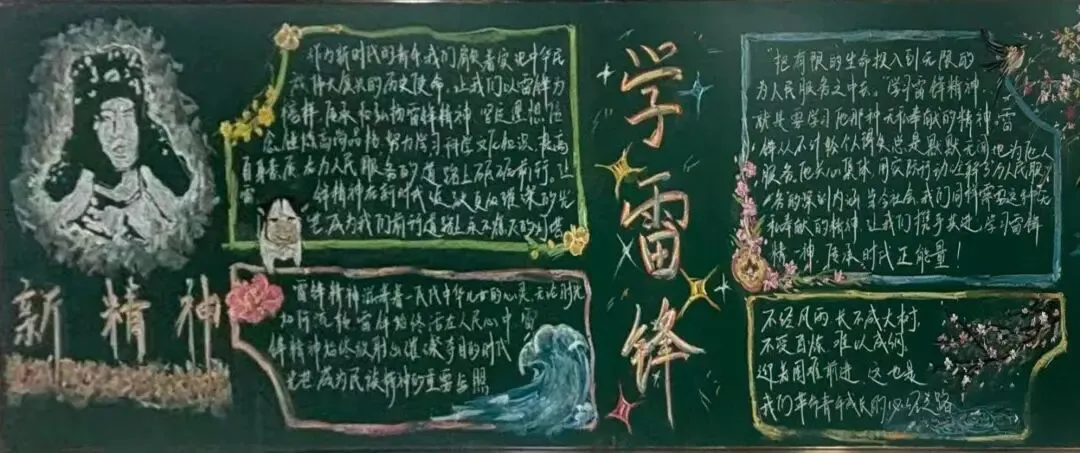 作为新时代的青年,我们肩负着实现中华民
族伟大复兴的历史使命,让我们以雷锋为
榜样,传承和弘扬雷锋精神,坚定理想信
念,锤炼高尚品格,努力学习科学文化知识,提高
自身素质,在为人民服务的道路上砥砺前行,让
雷锋精神在新时代绽放更加璀璨的光
芒,成为我们前行道路上永不熄灭的灯塔
新精神
雷锋精神滋养着一代代中华儿女的心灵,无论时光
如何流转,雷锋始终活在人民心中,雷
锋精神始终放射出璀璨夺目的时代
光芒,成为民族精神的重要写照
学雷锋
“把有限的生命投入到无限的
为人民服务之中去。”学习雷锋精神,
就是要学习他那种无私奉献的精神,雷
锋从不计较个人得失,总是默默无闻地为他人
服务,他关心集体,用实际行动诠释了为人民服
务的深刻内涵,当今社会,我们同样需要这种无
私奉献的精神,让我们携手共进,学习雷锋
精神,传承时代正能量!
不经风雨,长不成大树,
不受百炼,难以成钢,
迎着困难前进,这也是
我们革命青年成长的必经之路